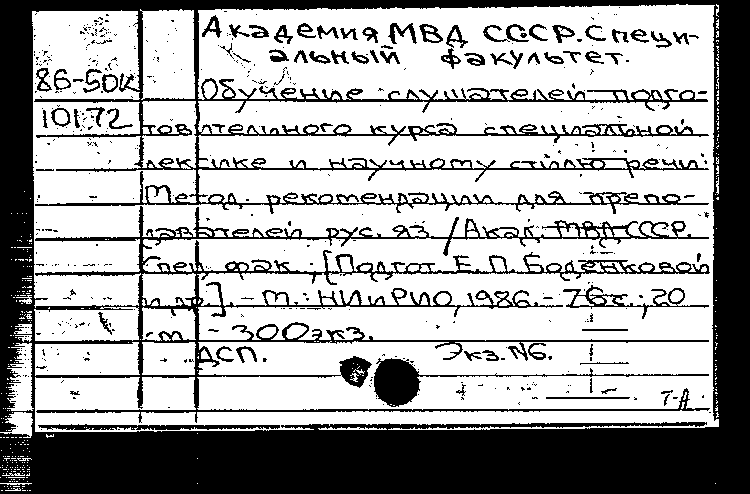 Академия МВД СССР. Специ-
альный факультет.
86-50К
Обучение слушателей подго-
10172
товительного курса специальной
лексике и научному стилю речи:
Метод. рекомендации для препо-
давателей рус. яз. / Акад. МВД СССР.
Спец. фак.; [Подгот. Е. П. Боденковой
и др.]. - М.: НИиРИО, 1986. - 76 с.; 20
см. - 300 экз.
ДСП. Экз. N6.
Т-А